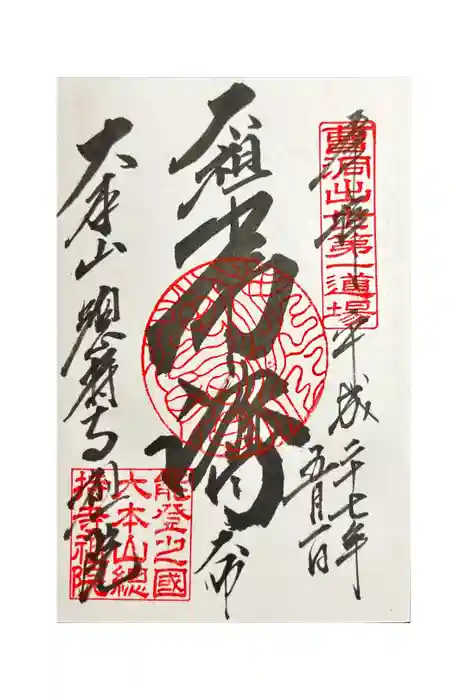 曹洞出世第一道場
平成二十七年
五月
太祖常濟大師
大本山總持寺祖院
能登之國
大本山總
持寺祖院